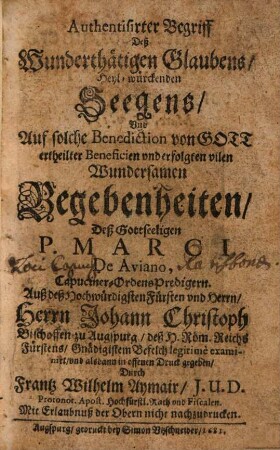 Authentisirter Begriff
Deß
Wunderthätigen Glaubens/
Heyl-würckenden
Seegens/
Vnd
Auf solche Benediction von GOTT
ertheilter Beneficien vnd erfolgten vilen
Wundersamen
Begebenheiten/
Deß Gottseeligen
P. MARCI
De Aviano,
Capuciner-Ordens Predigern.
Auß deß Hochwürdigsten Fürsten vnd Herrn/
Herrn Johann Christoph
Bischoffen zu Augspurg/ deß H. Röm. Reichs
Fürstens/ Gnädigistem Befelch legitimè exami-
nirt/ vnd alsdann in offenen Druck gegeben/
Durch
Frantz Wilhelm Aymair/ J. U. D.
Protonot. Apost. Hochfürstl. Rath vnd Fiscalen.
Mit Erlaubnuß der Obern nicht nachzudrucken.
Augspurg/ gedruckt bey Simon Vtzschneider/